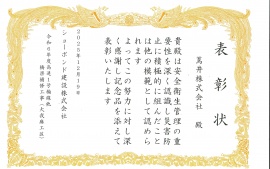 表彰状
萬井株式会社 殿
貴殿は安全衛生管理の重
要性を深く認識し災害防
止に積極的に組んだこと
は他の模範として認めら
れます
よってこの努力に対し深
く感謝し記念品を添えて
表彰いたします
2025年12月19日
ショーボンド建設株式会社